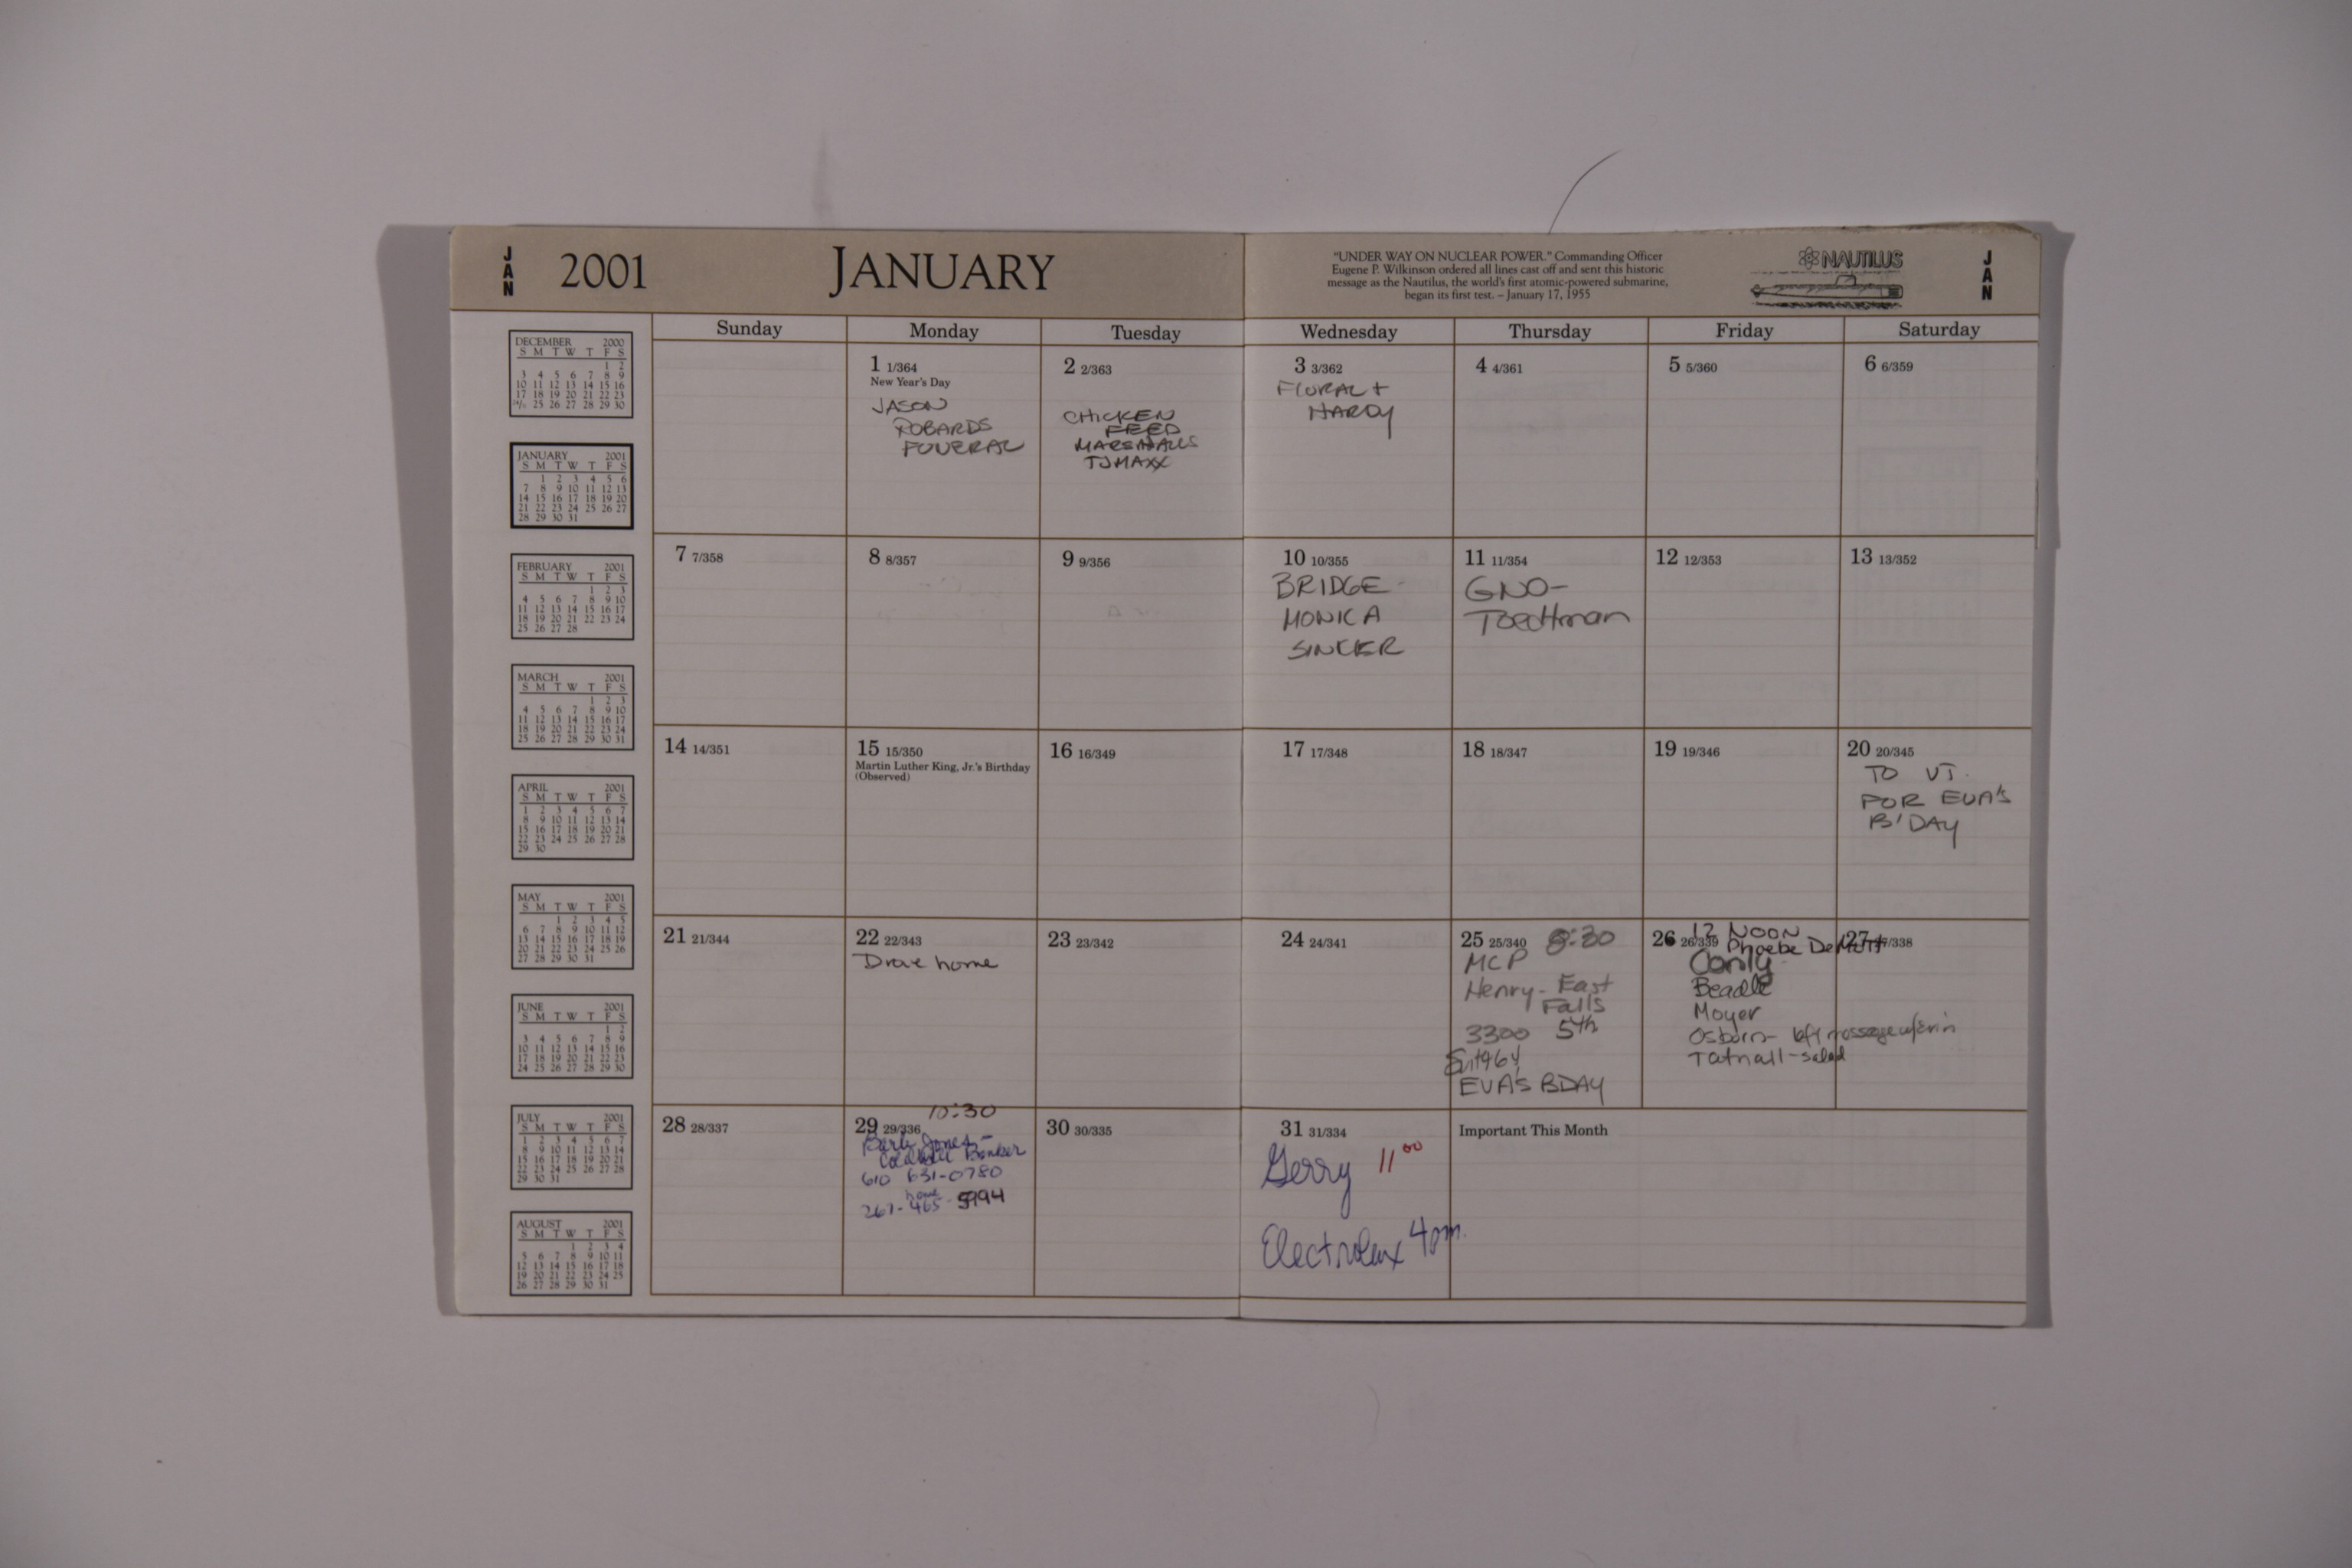 JAN
2001
JANUARY
"UNDER WAY ON NUCLEAR POWER." Commanding Officer
Eugene P. Wilkinson ordered all lines cast off and sent this historic
message as the Nautilus, the world's first atomic-powered submarine,
began its first test. – January 17, 1955
NAUTILUS
JAN
DECEMBER 2000
S M T W T F S
1 2
3 4 5 6 7 8 9
10 11 12 13 14 15 16
17 18 19 20 21 22 23
25 26 27 28 29 30
JANUARY 2001
S M T W T F S
1 2 3 4 5 6
7 8 9 10 11 12 13
14 15 16 17 18 19 20
21 22 23 24 25 26 27
28 29 30 31
FEBRUARY 2001
S M T W T F S
1 2 3
4 5 6 7 8 9 10
11 12 13 14 15 16 17
18 19 20 21 22 23 24
25 26 27 28
MARCH 2001
S M T W T F S
1 2 3
4 5 6 7 8 9 10
11 12 13 14 15 16 17
18 19 20 21 22 23 24
25 26 27 28 29 30 31
APRIL 2001
S M T W T F S
1 2 3 4 5 6 7
8 9 10 11 12 13 14
15 16 17 18 19 20 21
22 23 24 25 26 27 28
29 30
MAY 2001
S M T W T F S
1 2 3 4 5
6 7 8 9 10 11 12
13 14 15 16 17 18 19
20 21 22 23 24 25 26
27 28 29 30 31
JUNE 2001
S M T W T F S
1 2
3 4 5 6 7 8 9
10 11 12 13 14 15 16
17 18 19 20 21 22 23
24 25 26 27 28 29 30
JULY 2001
S M T W T F S
1 2 3 4 5 6 7
8 9 10 11 12 13 14
15 16 17 18 19 20 21
22 23 24 25 26 27 28
29 30 31
AUGUST 2001
S M T W T F S
1 2 3 4
5 6 7 8 9 10 11
12 13 14 15 16 17 18
19 20 21 22 23 24 25
26 27 28 29 30 31
Sunday Monday Tuesday Wednesday Thursday Friday Saturday
1 1/364
New Year's Day
JASON
ROBARDS
FUNERAL
2 2/363
CHICKEN
FEED
MARSHALLS
TJMAXX
3 3/362
FLORAL +
HARDY
4 4/361
5 5/360
6 6/359
7 7/358
8 8/357
9 9/356
10 10/355
BRIDGE
MONICA
SINKER
11 11/354
GNO-
Toedtman
12 12/353
13 13/352
14 14/351
15 15/350
Martin Luther King, Jr.'s Birthday
(Observed)
16 16/349
17 17/348
18 18/347
19 19/346
20 20/345
TO VT.
FOR EVA'S
B'DAY
21 21/344
22 22/343
Drove home
23 23/342
24 24/341
25 25/340 8:30
MCP
Henry- East
Falls
3300 5th
EVA'S BDAY
12 NOON
26 26/339 Phoebe
Beadle
Moyer
Osborn- left message w/Erin
Tatnall-salad
27 27/338
28 28/337
10:30
29 29/336
Jones-
Coldwell Banker
610 631-0780
home
267-465-5994
30 30/335
31 31/334
Gerry 11 00
Electrolux 4pm.
Important This Month